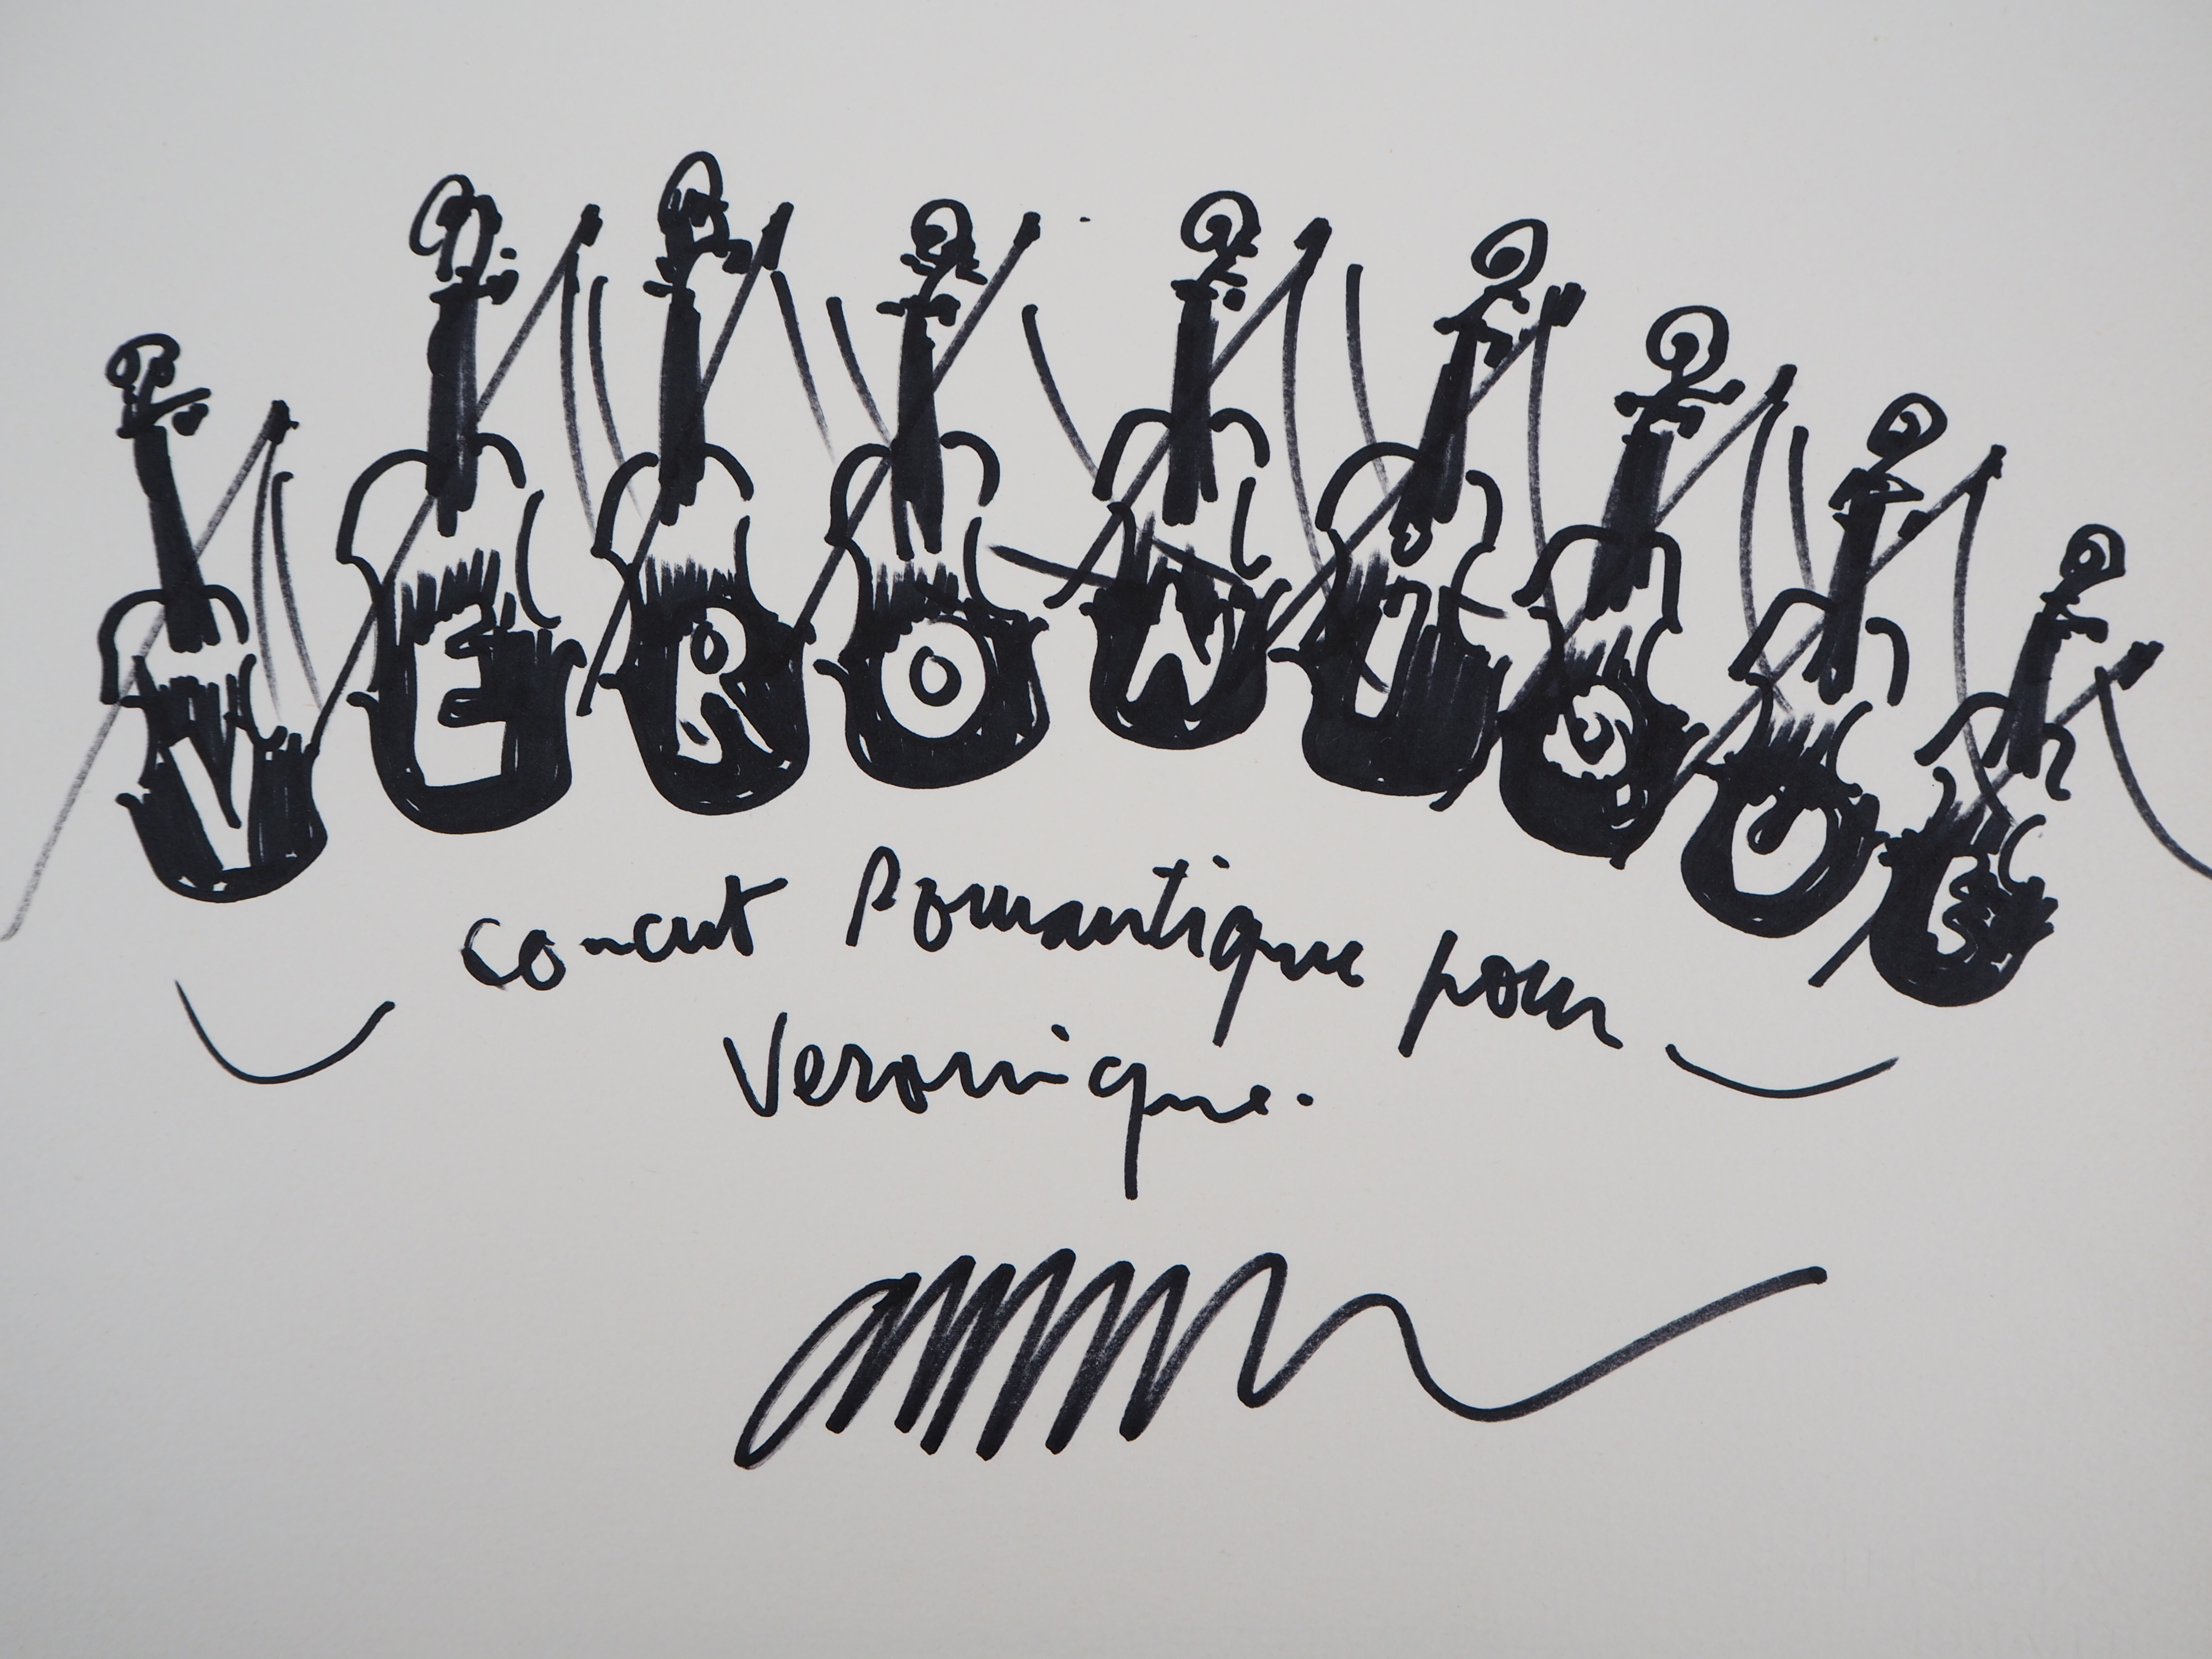 VERONIQUE
concert Romantique pour
Veronique.